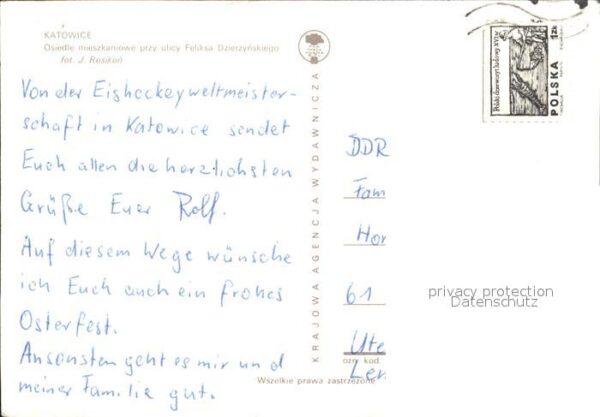 KATOWICE
Osiedle mieszkaniowe przy ulicy Feliksa Dzierżyńskiego
fot. J. Rosikoń
Von der Eishockeyweltmeister-
schaft in Katowice sendet
Euch allen die herzlichsten
Grüße Euer Rolf.
Auf diesem Wege wünsche
ich Euch auch ein frohes
Osterfest.
Ansonsten geht es mir und
meiner Familie gut.
KRAJOWA AGENCJA WYDAWNICZA
Wszelkie prawa zastrzeżone
POLSKA 1zł
Polski drzeworyt ludowy XVI w.
DDR
Fam
Hor
61
Ute
Ler
ozn. kod.
privacy protection
Datenschutz